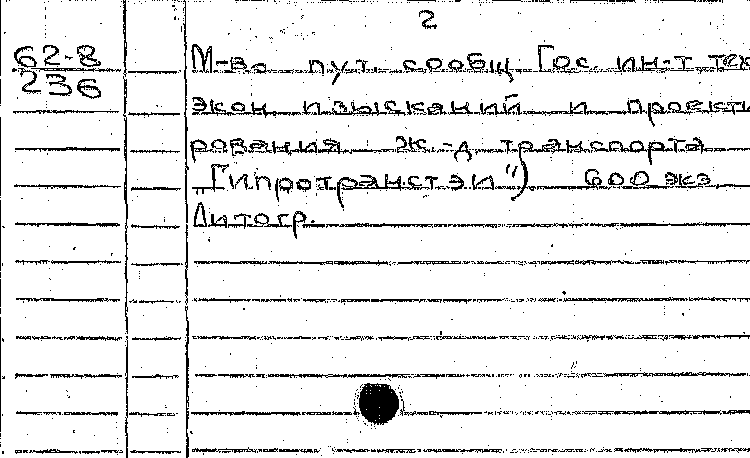 2
62-8
236
М-во пут. сообщ. Гос. ин-т тех
экон. изысканий и проекти
рования ж.-д. транспорта
„Гипротранстэи"). 600 экз.
Литогр.